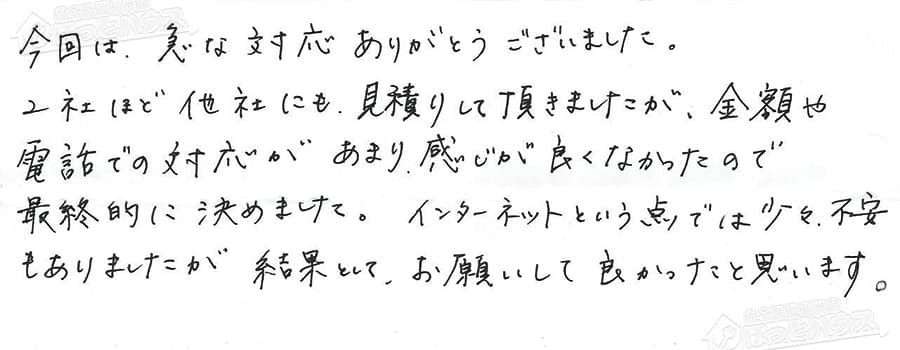 今回は、急な対応ありがとうございました。
2社ほど他社にも、見積りして頂きましたが、金額や
電話での対応が あまり、感じが良くなかったので
最終的に決めました。 インターネットという点では少々、不安
もありましたが 結果として、お願いして良かったと思います。